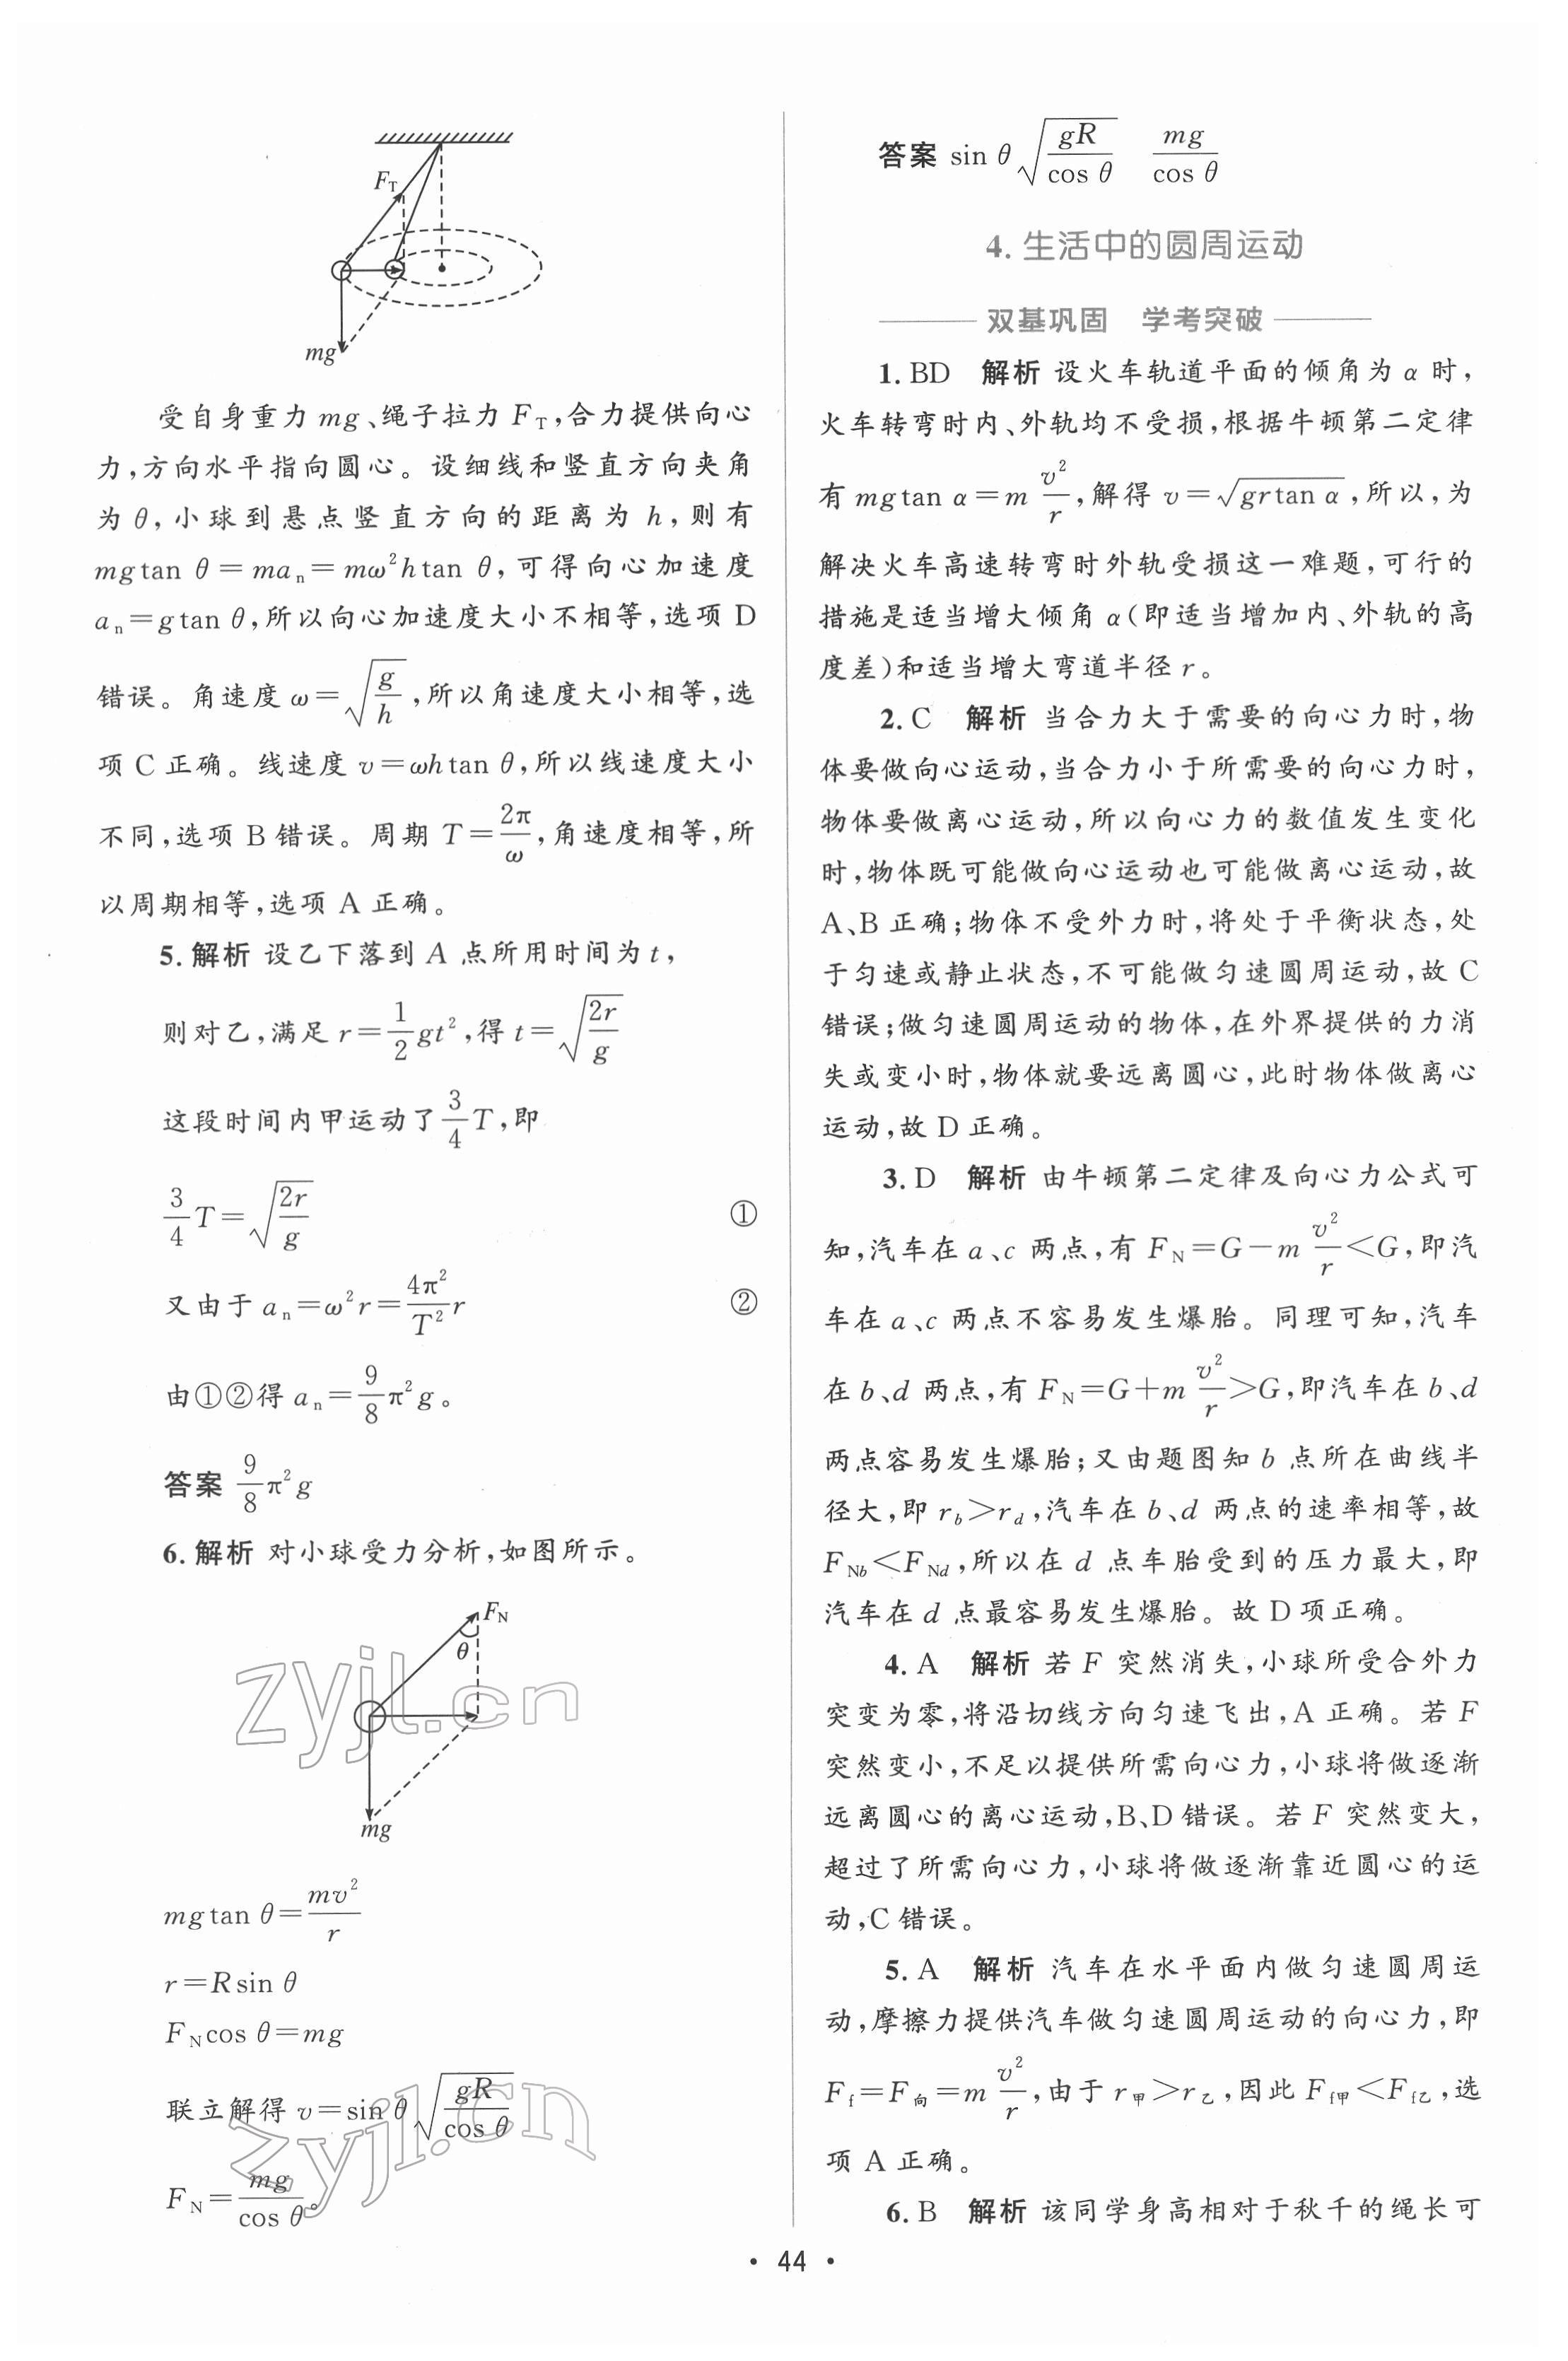 F_T
mg
受自身重力 mg、绳子拉力 F_T,合力提供向心
力,方向水平指向圆心。设细线和竖直方向夹角
为 θ,小球到悬点竖直方向的距离为 h,则有
mgtan θ=ma_n=mω²htan θ,可得向心加速度
a_n=gtan θ,所以向心加速度大小不相等,选项 D
错误。角速度 ω=√(g/h),所以角速度大小相等,选
项 C 正确。线速度 v=ωhtan θ,所以线速度大小
不同,选项 B 错误。周期 T=2π/ω,角速度相等,所
以周期相等,选项 A 正确。
5. 解析 设乙下落到 A 点所用时间为 t,
则对乙,满足 r=1/2gt²,得 t=√(2r/g)
这段时间内甲运动了3/4T,即
3/4T=√(2r/g) ①
又由于 a_n=ω²r=4π²/T²r ②
由①②得 a_n=9/8π²g。
答案 9/8π²g
6. 解析 对小球受力分析,如图所示。
F_N
θ
zyjl.cn
mg
mgtan θ=mv²/r
r=Rsin θ
F_Ncos θ=mg
联立解得 v=sin θ√(gR/cos θ)
zyjl.cn
F_N=mg/cos θ。
答案 sin θ√(gR/cos θ) mg/cos θ
4. 生活中的圆周运动
双基巩固 学考突破
1. BD 解析 设火车轨道平面的倾角为 α 时,
火车转弯时内、外轨均不受损,根据牛顿第二定律
有 mgtan α=m v²/r,解得 v=√(grtan α),所以,为
解决火车高速转弯时外轨受损这一难题,可行的
措施是适当增大倾角 α(即适当增加内、外轨的高
度差)和适当增大弯道半径 r。
2. C 解析 当合力大于需要的向心力时,物
体要做向心运动,当合力小于所需要的向心力时,
物体要做离心运动,所以向心力的数值发生变化
时,物体既可能做向心运动也可能做离心运动,故
A、B 正确;物体不受外力时,将处于平衡状态,处
于匀速或静止状态,不可能做匀速圆周运动,故 C
错误;做匀速圆周运动的物体,在外界提供的力消
失或变小时,物体就要远离圆心,此时物体做离心
运动,故 D 正确。
3. D 解析 由牛顿第二定律及向心力公式可
知,汽车在 a、c 两点,有 F_N=G-m v²/r<G,即汽
车在 a、c 两点不容易发生爆胎。同理可知,汽车
在 b、d 两点,有 F_N=G+m v²/r>G,即汽车在 b、d
两点容易发生爆胎;又由题图知 b 点所在曲线半
径大,即 r_b>r_d,汽车在 b、d 两点的速率相等,故
F_Nb<F_Nd,所以在 d 点车胎受到的压力最大,即
汽车在 d 点最容易发生爆胎。故 D 项正确。
4. A 解析 若 F 突然消失,小球所受合外力
突变为零,将沿切线方向匀速飞出,A 正确。若 F
突然变小,不足以提供所需向心力,小球将做逐渐
远离圆心的离心运动,B、D 错误。若 F 突然变大,
超过了所需向心力,小球将做逐渐靠近圆心的运
动,C 错误。
5. A 解析 汽车在水平面内做匀速圆周运
动,摩擦力提供汽车做匀速圆周运动的向心力,即
F_f=F_向=m v²/r,由于 r_甲>r_乙,因此 F_f甲<F_f乙,选
项 A 正确。
6. B 解析 该同学身高相对于秋千的绳长可
• 44 •